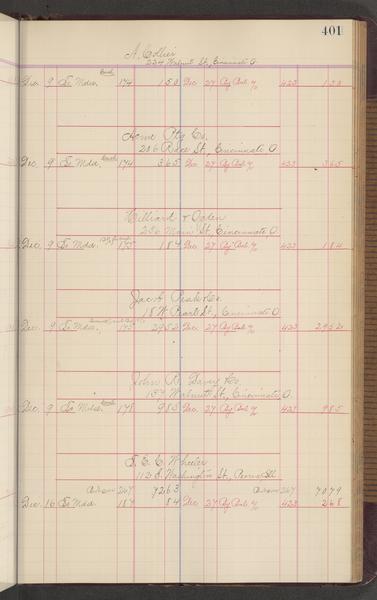 401
A. Collier
224 Walnut St, Cincinnati O
Dec 9 To Mdse 174 150 Dec 27 By Bal 423 150
Acme Ptg Co.
206 Race St, Cincinnati O
Dec. 9 To Mdse 174 365 Dec 27 By Bal 423 365
Hilliard & Ogden
206 Main St, Cincinnati, O
Dec. 9 To Mdse. 175 184 Dec 27 By Bal 423 184
Jacob & Co.
18 W Pearl St, Cincinnati O
Dec. 9 To Mdse. 175 2952 Dec. 27 By Bal 423 2952
John R. Davey & Co.
157 Walnut St, Cincinnati, O.
Dec. 9 To Mdse. 178 985 Dec. 27 By Bal 423 985
E. C. Wheeler
112 E Washington St,
267 7263 267 7079
Dec. 16 To Mdse 187 84 Dec 27 By Bal 423 268